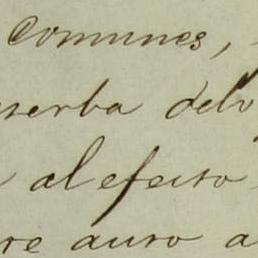 comunes,
serba delo
al efecto
re auro a